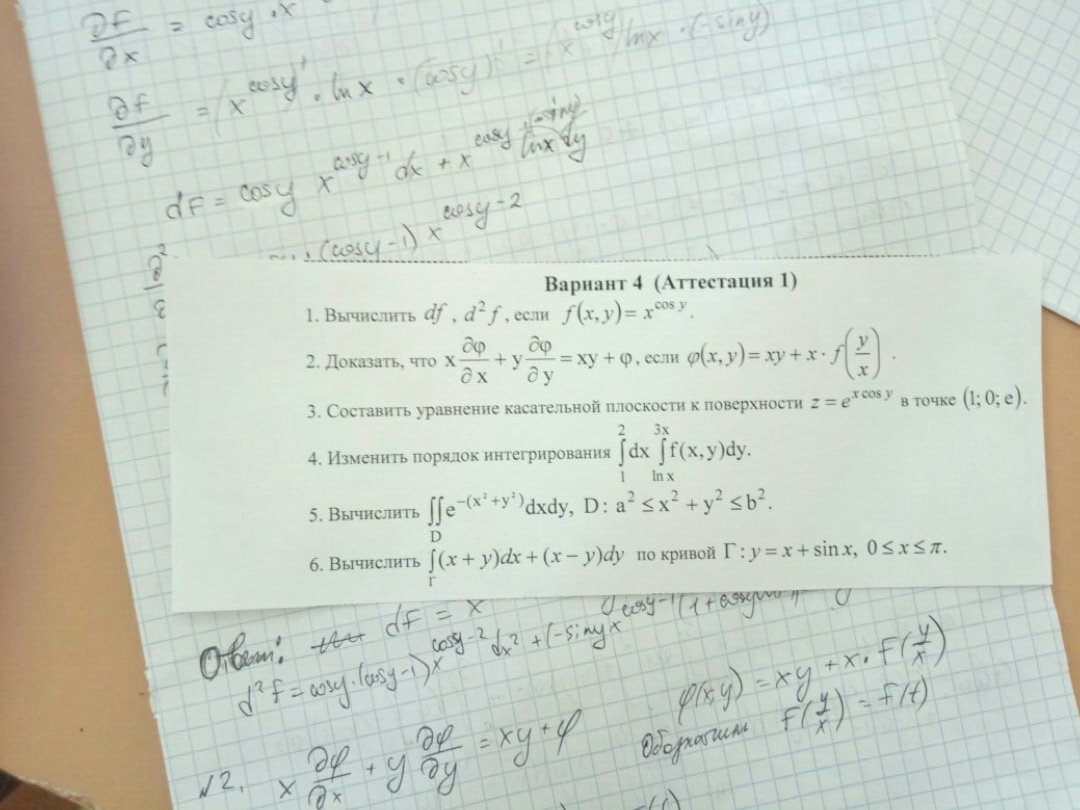 ∂F/∂x = cosy · x
∂F/∂y = (x^cosy)' · lnx · (cosy)' = (x^cosy) lnx · (-siny)
dF = cosy x^(cosy-1) dx + x^cosy · (-siny) lnx dy
(cosy-1) x^(cosy-2)
Вариант 4 (Аттестация 1)
1. Вычислить df , d²f , если f(x, y) = x^(cos y).
2. Доказать, что x ∂φ/∂x + y ∂φ/∂y = xy + φ, если φ(x, y) = xy + x · f(y/x) .
3. Составить уравнение касательной плоскости к поверхности z = e^(x cos y) в точке (1; 0; e).
4. Изменить порядок интегрирования ∫₁² dx ∫_(ln x)^(3x) f(x, y)dy.
5. Вычислить ∬_D e^(-(x²+y²)) dxdy, D: a² ≤ x² + y² ≤ b².
6. Вычислить ∫_Γ (x + y)dx + (x − y)dy по кривой Γ: y = x + sin x, 0 ≤ x ≤ π.
Ответ: dF = x
d²f = cosy·(cosy-1) x^(cosy-2) dx² + (-siny x^(cosy-1) (1+cosy
№2. x ∂φ/∂x + y ∂φ/∂y = xy + φ
φ(x,y) = xy + x · F(y/x)
Обозначим F(y/x) = F(t)